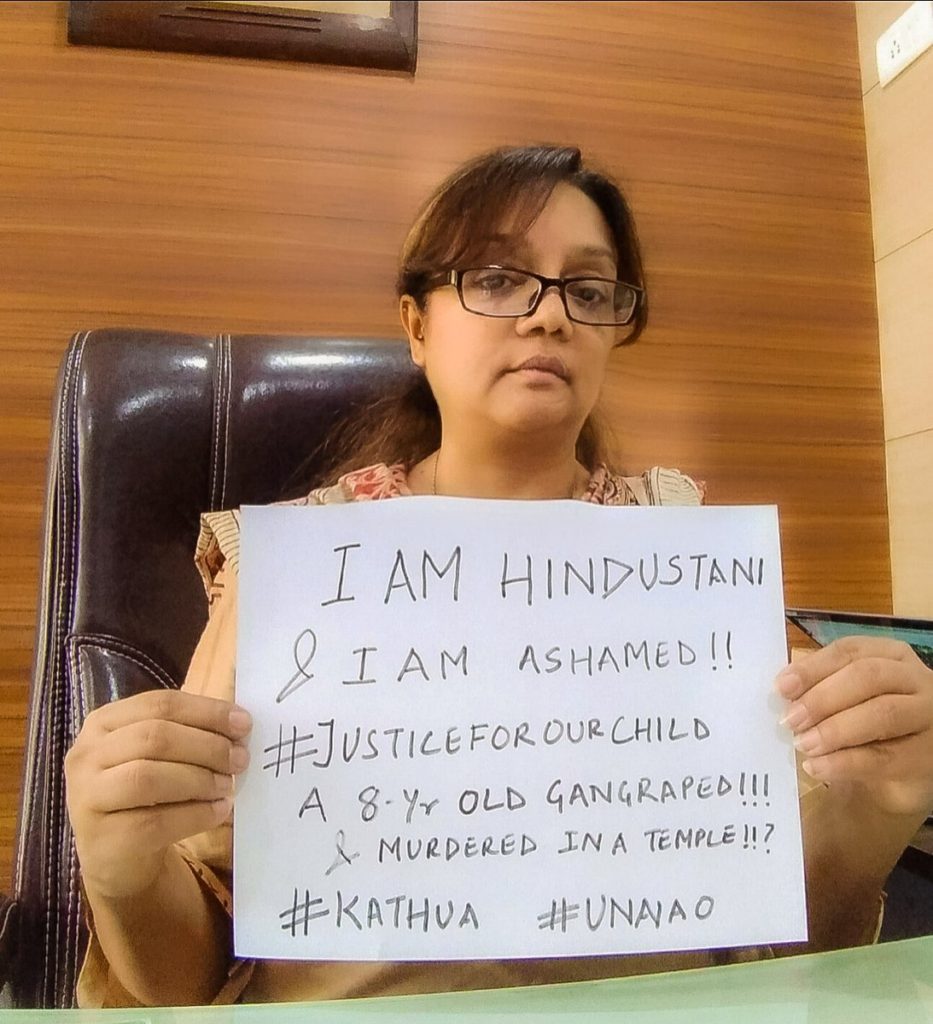 I AM HINDUSTANI
& I AM ASHAMED!!
#JUSTICEFOROURCHILD
A 8-Yr OLD GANGRAPED!!!
& MURDERED IN A TEMPLE!!?
#KATHUA #UNAAO